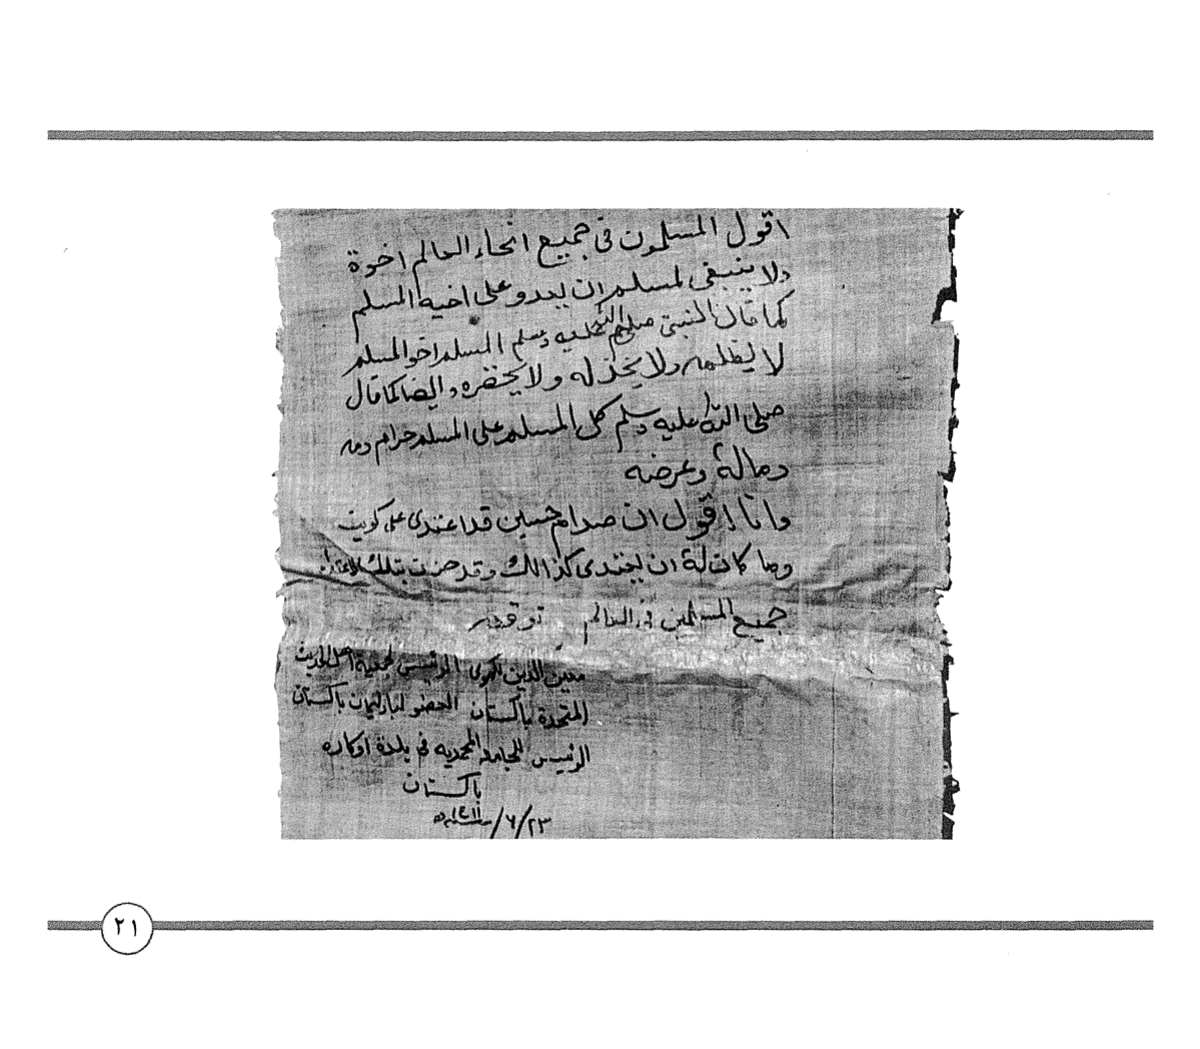 اقول المسلمون في جميع انحاء العالم اخوة
ولا ينبغي لمسلم ان يعدو على اخيه المسلم
كما قال النبي صلى الله عليه وسلم المسلم اخو المسلم
لا يظلمه ولا يخذله ولا يحقره وايضا كما قال
صلى الله عليه وسلم كل المسلم على المسلم حرام دمه
وماله وعرضه
وانا اقول ان صدام حسين قد اعتدى على كويت
وما كان له ان يعتدى كذالك وقد حزنت بتلك الاعتداء
جميع المسلمين في العالم توقيعه
معين الدين لكهوى الرئيس لجمعية اهل الحديث
المتحدة باكستان العضو لبارليمان باكستان
الرئيس للجامعة المحمديه في بلدة اوكاره
باكستان
٢٣/٦/١٤١١ھ
٢١